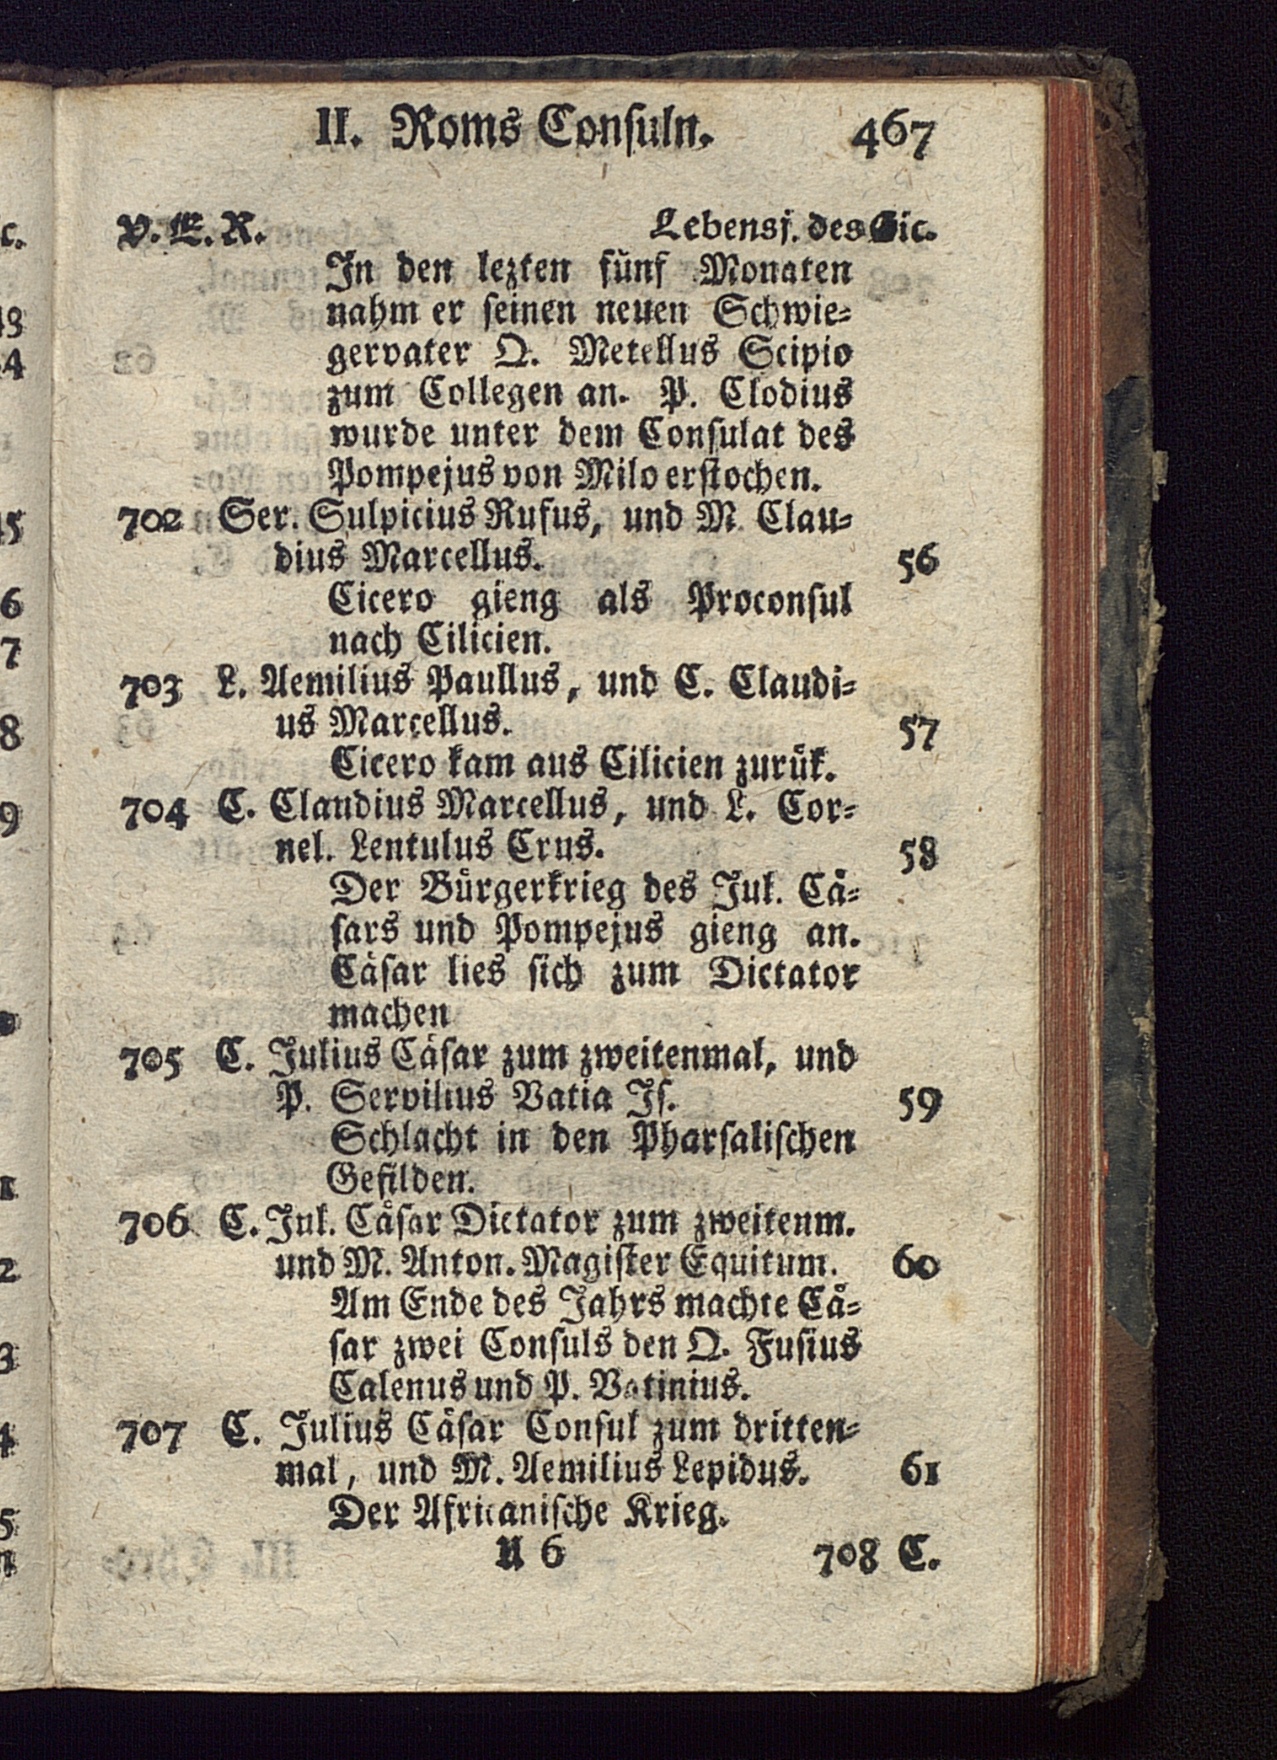 II. Roms Consuln. 467
V. E. R. Lebensj. des Cic.
In den lezten fünf Monaten
nahm er seinen neuen Schwie=
gervater Q. Metellus Scipio
zum Collegen an. P. Clodius
wurde unter dem Consulat des
Pompejus von Milo erstochen.
702 Ser. Sulpicius Rufus, und M. Clau=
dius Marcellus. 56
Cicero gieng als Proconsul
nach Cilicien.
703 L. Aemilius Paullus, und C. Claudi=
us Marcellus. 57
Cicero kam aus Cilicien zurük.
704 C. Claudius Marcellus, und L. Cor=
nel. Lentulus Crus. 58
Der Bürgerkrieg des Jul. Cä=
sars und Pompejus gieng an.
Cäsar lies sich zum Dictator
machen
705 C. Julius Cäsar zum zweitenmal, und
P. Servilius Vatia Js. 59
Schlacht in den Pharsalischen
Gefilden.
706 C. Jul. Cäsar Dictator zum zweitenm.
und M. Anton. Magister Equitum. 60
Am Ende des Jahrs machte Cä=
sar zwei Consuls den Q. Fusius
Calenus und P. Vatinius.
707 C. Julius Cäsar Consul zum dritten=
mal, und M. Aemilius Lepidus. 61
Der Africanische Krieg.
U 6 708 C.